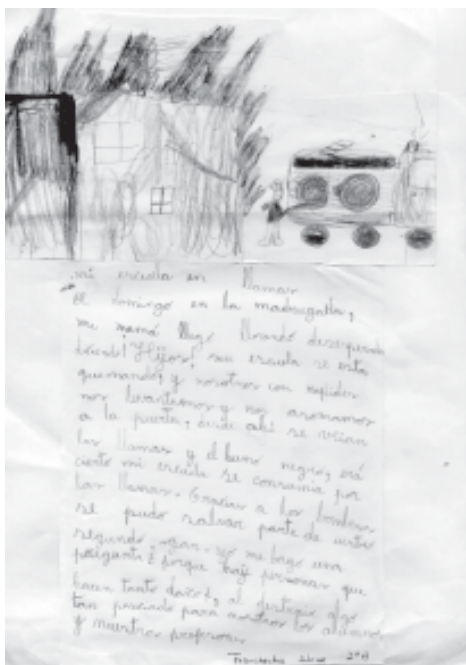 mi escuela en llamas
el domingo en la madrugada,
me mamá llego llorando
diciendo! Hijos! su escuela se esta
quemando, y nosotros con rapides
nos levantamos y nos asomamos
a la puerta, desde ahí se veían
las llamas y el humo negro, era
cierto mi escuela se consumia por
las llamas. Gracias a los bomberos
se pudo salvar parte de
segundo yo me hago una
pregunta ¿ porque hay personas que
hacen tanto daño?, al destruir algo
tan preciado para nosotros los alumnos
y nuestros profesores.
2º A